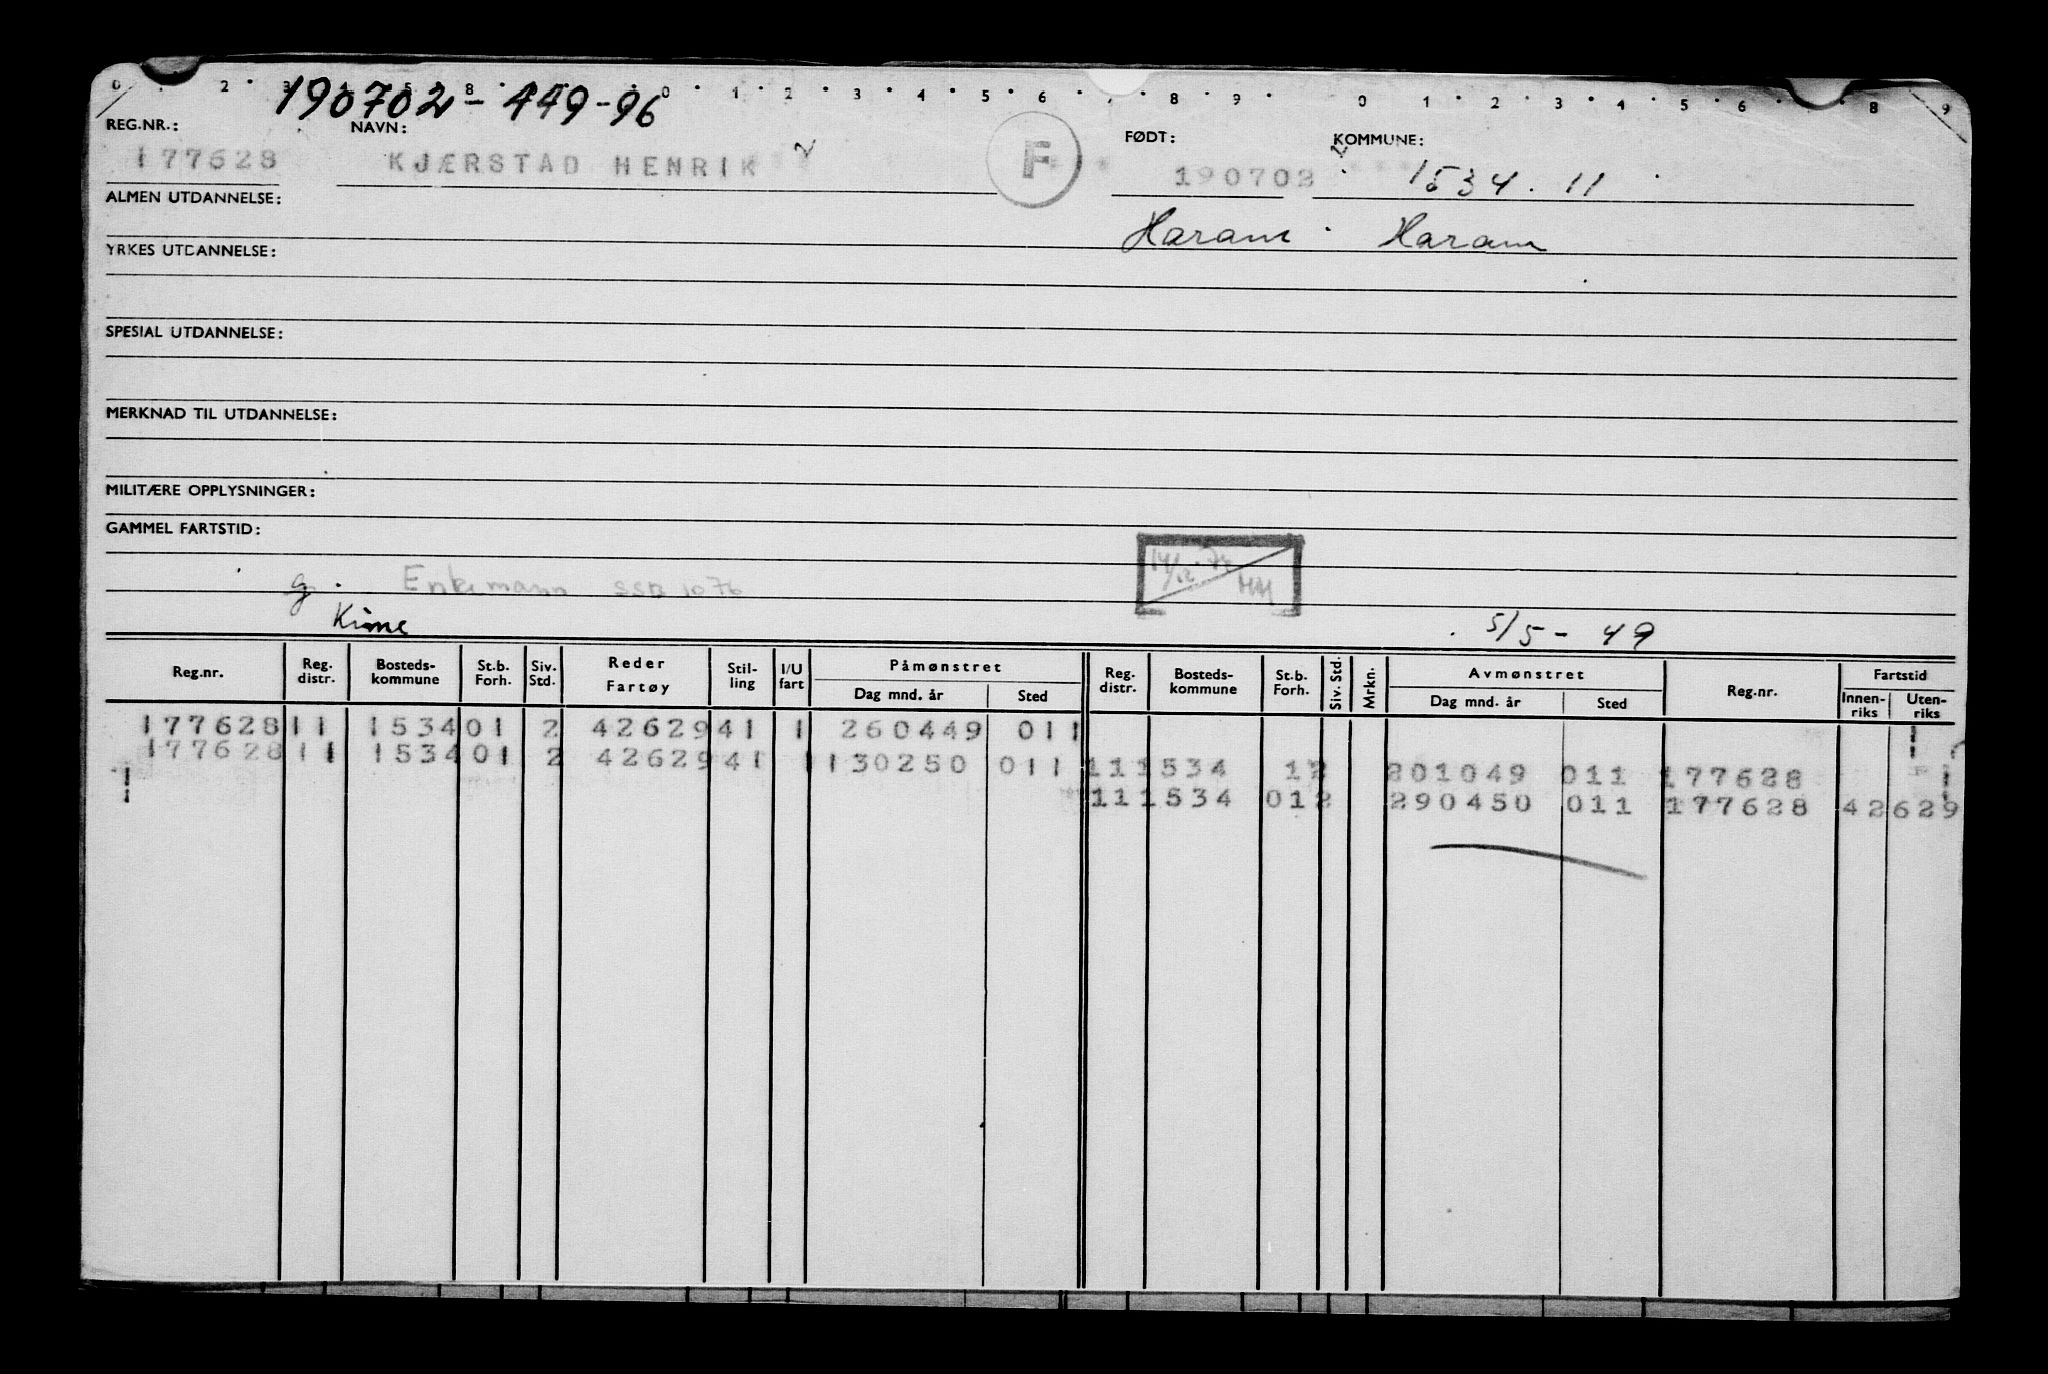 0 2 3 5 8 0 1 2 3 4 5 6 8 9 0 1 2 3 4 5 6 8 9
190702-449-96
REG.NR.: NAVN: FØDT: KOMMUNE:
177628 KJÆRSTAD HENRIK F 190702 1534.11
ALMEN UTDANNELSE:
Haram Haram
YRKES UTDANNELSE:
SPESIAL UTDANNELSE:
MERKNAD TIL UTDANNELSE:
MILITÆRE OPPLYSNINGER:
GAMMEL FARTSTID:
g. Enkemann SSB 1076
Kime 5/5-49
Reg.nr. Reg. distr. Bosteds-kommune St.b. Forh. Siv. Std. Reder Fartøy Stil-ling I/U fart Påmønstret Dag mnd. år Sted Reg. distr. Bosteds-kommune St.b. Forh. Siv. Std. Mrkn. Avmønstret Dag mnd. år Sted Reg.nr. Fartstid Innen-riks Uten-riks
177628 11 1534 01 2 42629 41 1 260449 011
177628 11 1534 01 2 42629 41 1 130250 011 11 1534 12 201049 011 177628
11 1534 012 290450 011 177628 42629